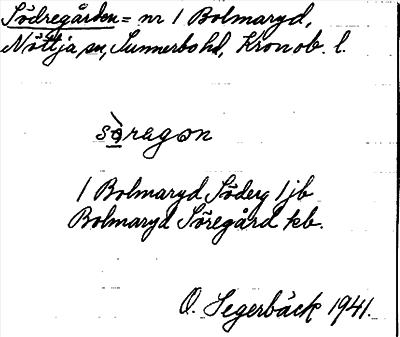 Södregården = nr 1 Bolmaryd,
Nöttja sn, Sunnerbo hd, Kronob. l.
sòragon
1 Bolmaryd Söderg 1 jb
Bolmaryd Söregård kb.
O. Segerbäck 1941.